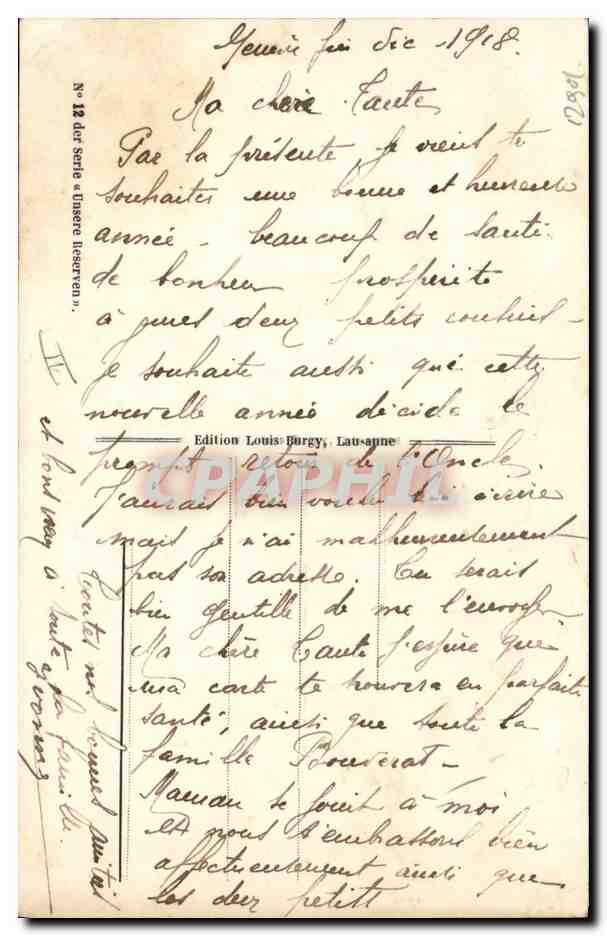 fin dic 1918.
Ma chère Tante
Par la présente je viens te
souhaiter une bonne et heureuse
année - beaucoup de santé
de bonheur prospérité
à deux petits
je souhaite aussi que cette
nouvelle année décide le
Edition Louis Burgy, Lausanne
prompt retour de l'Oncle.
J'aurais bien voulu lui écrire
mais je n'ai malheureusement
pas son adresse. Tu serais
bien gentille de me l'envoyer
Ma chère Tante j'espère que
ma carte te trouvera en parfaite
santé, ainsi que toute la
famille
Maman se joint à moi
et nous t'embrassons bien
affectueusement ainsi que
les deux petits
Toutes nos bonnes amitiés
et bons à toute la famille.
Yvonne
II
No 12 der Serie «Unsere Reserven».
CPAPHIL